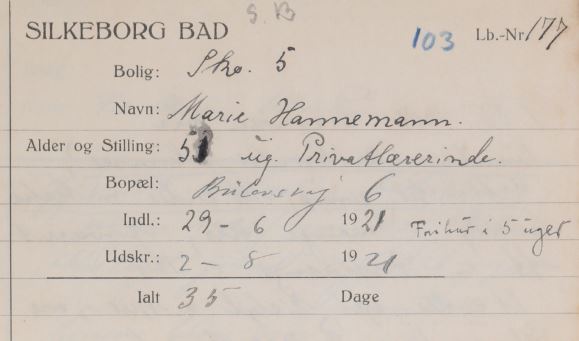 S.B
SILKEBORG BAD 103 Lb.-Nr 177
Bolig: Sko. 5
Navn: Marie Hannemann.
Alder og Stilling: 51 ug. Privatlærerinde.
Bopæl: Bülowsvej 6
Indl.: 29 - 6 1921 Frikur i 5 uger
Udskr.: 2 - 8 1921
Ialt 35 Dage